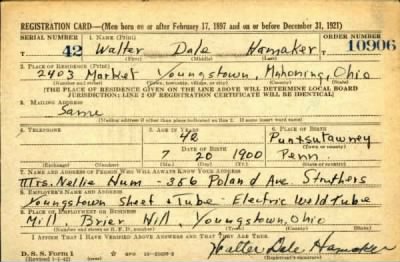 REGISTRATION CARD—(Men born on or after February 17, 1897 and on or before December 31, 1921)
SERIAL NUMBER 1. NAME (Print) ORDER NUMBER
T 42 Walter Dale Hamaker 10906
(First) (Middle) (Last)
2. PLACE OF RESIDENCE (Print)
2403 Market Youngstown, Mahoning, Ohio
(Number and street) (Town, township, village, or city) (County) (State)
[THE PLACE OF RESIDENCE GIVEN ON THE LINE ABOVE WILL DETERMINE LOCAL BOARD
JURISDICTION; LINE 2 OF REGISTRATION CERTIFICATE WILL BE IDENTICAL]
3. MAILING ADDRESS
Same
[Mailing address if other than place indicated on line 2. If same insert word same]
4. TELEPHONE 5. AGE IN YEARS 6. PLACE OF BIRTH
42 Punxsutawney
DATE OF BIRTH (Town or county)
7 20 1900 Penn.
(Exchange) (Number) (Mo.) (Day) (Yr.) (State or country)
7. NAME AND ADDRESS OF PERSON WHO WILL ALWAYS KNOW YOUR ADDRESS
Mrs. Nellie Hum - 356 Poland Ave. Struthers
8. EMPLOYER'S NAME AND ADDRESS
Youngstown Sheet & Tube - Electric Weld Tube
9. PLACE OF EMPLOYMENT OR BUSINESS
Mill, Brier Hill, Youngstown, Ohio
(Number and street or R. F. D. number) (Town) (County) (State)
I AFFIRM THAT I HAVE VERIFIED ABOVE ANSWERS AND THAT THEY ARE TRUE.
D. S. S. Form 1 Walter Dale Hamaker
(Revised 4-1-42) (over)